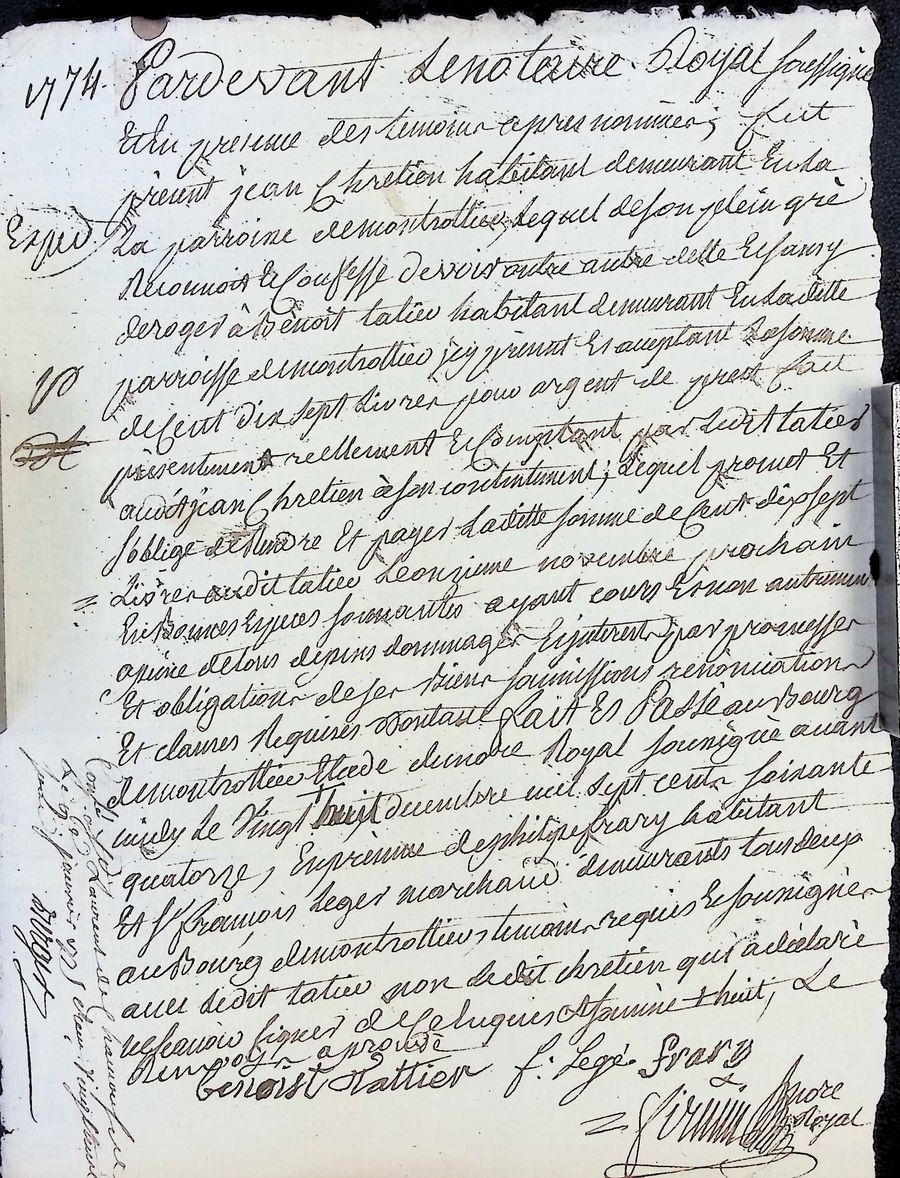 1774. Pardevant Le notaire Royal soussigné
Et En presence des temoins apres nommés, fut
present jean Chretien habitant demeurant En La
La parroisse de montrottier, Lequel de son plein gré
Expéd
Reconnoit Et Confesse devoir outre autre dette Et sans y
deroger à Benoit tatier habitant demeurant En Ladille
parroisse de montrottier icy present Et acceptant La somme
de Cent dix sept Livres pour argent de prest fait
presentement reellement Et Comptant par Ledit tatier
audit jean Chretien à son contentement; Lequel promet Et
s'oblige de Rendre Et payer Laditte somme de Cent dix sept
Livres audit tatier Le onzieme novembre prochain
En Bonnes Especes sonnantes ayant cours Et non autrement
a peine de tous depens dommages Et interests par promesses
Et obligations de ses Biens soumissions renonciations
Et clauses Requises Dontacte fait Et Passé au Bourg
de montrottier Etude de nore Royal soussigné avant
midy Le Vingt huit decembre mil sept cents soixante
quatorze, En presence de philipe frary habitant
Et Sr françois Leger marchand demeurants tous deux
au Bourg de montrottier temoins requis Et soussignés
avec Ledit tatier non Ledit chretien qui a déclaré
ne sçavoir signer de Ce Enquis Et sommé huit, Le
Renvoy approuvé
Benoist Rattier f: Legé frary
Firmin nore Royal
Conlé à St Laurent de Chamousset
Le janvier 1775